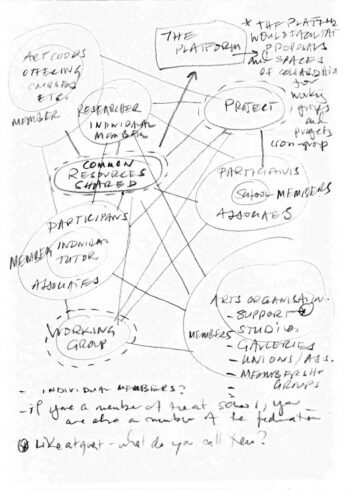 THE
PLATFORM
* THE PLATFORM
WOULD FACILITATE
PROPOSALS
AND SPACES
OF
for
working
groups
and
projects
cross-group
ART
OFFERING
MEMBER
RESEARCHER
INDIVIDUAL
MEMBER
PROJECT
COMMON
RESOURCES
SHARED
PARTICIPANTS
SCHOOL MEMBERS
ASSOCIATES
PARTICIPANTS
MEMBER INDIVIDUAL
TUTOR
ASSOCIATES
WORKING
GROUP
ARTS ORGANISATION
- SUPPORT
MEMBERS - STUDIOS
- GALLERIES
- UNIONS / ASS.
- MEMBERSHIP
GROUPS
- INDIVIDUAL MEMBERS?
- if you're a member of that school, you
are also a member of the federation
- what do you call them?